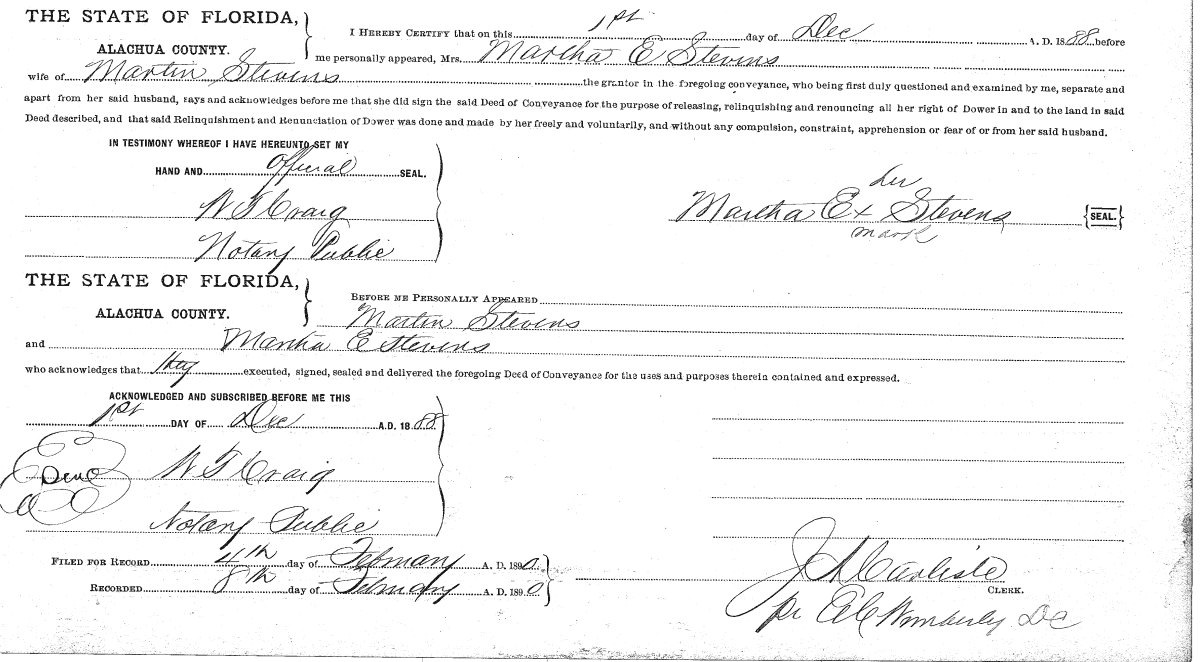 THE STATE OF FLORIDA,
ALACHUA COUNTY.
I HEREBY CERTIFY that on this 1st day of Dec A. D. 1888 before
me personally appeared, Mrs. Martha E Stevens
wife of Martin Stevens the grantor in the foregoing conveyance, who being first duly questioned and examined by me, separate and
apart from her said husband, says and acknowledges before me that she did sign the said Deed of Conveyance for the purpose of releasing, relinquishing and renouncing all her right of Dower in and to the land in said
Deed described, and that said Relinquishment and Renunciation of Dower was done and made by her freely and voluntarily, and without any compulsion, constraint, apprehension or fear of or from her said husband.
IN TESTIMONY WHEREOF I HAVE HEREUNTO SET MY
HAND AND official SEAL.
W T Craig
Notary Public
her
Martha E x Stevens SEAL.
mark
THE STATE OF FLORIDA,
ALACHUA COUNTY.
BEFORE ME PERSONALLY APPEARED
Martin Stevens
and Martha E Stevens
who acknowledges that they executed, signed, sealed and delivered the foregoing Deed of Conveyance for the uses and purposes therein contained and expressed.
ACKNOWLEDGED AND SUBSCRIBED BEFORE ME THIS
1st DAY OF Dec A.D. 1888
W T Craig
Notary Public
FILED FOR RECORD 4th day of February A. D. 1890
RECORDED 8th day of February A. D. 1890
J A Carlisle
CLERK.
pr Wimberly DC